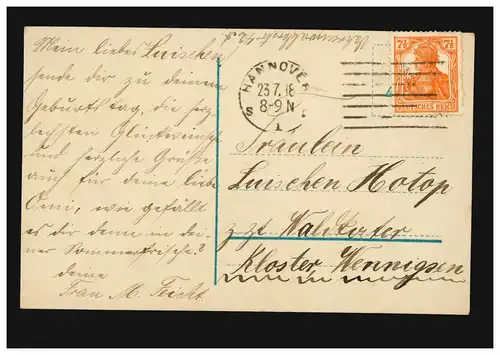 Mein liebes Luischen
sende dir zu deinem
Geburtstag, die herz-
lichsten Glückwünsche
und herzliche Grüße
auch für deine liebe
Omi, wie gefällt
es dir denn in dei-
ner Sommerfrische?
deine
Frau M. Feicht
HANNOVER
23.7.18
8-9N
S
1
7½ 7½
DEUTSCHES REICH
Fräulein
Luischen Hotop
z. Zt.
Kloster Wennigsen